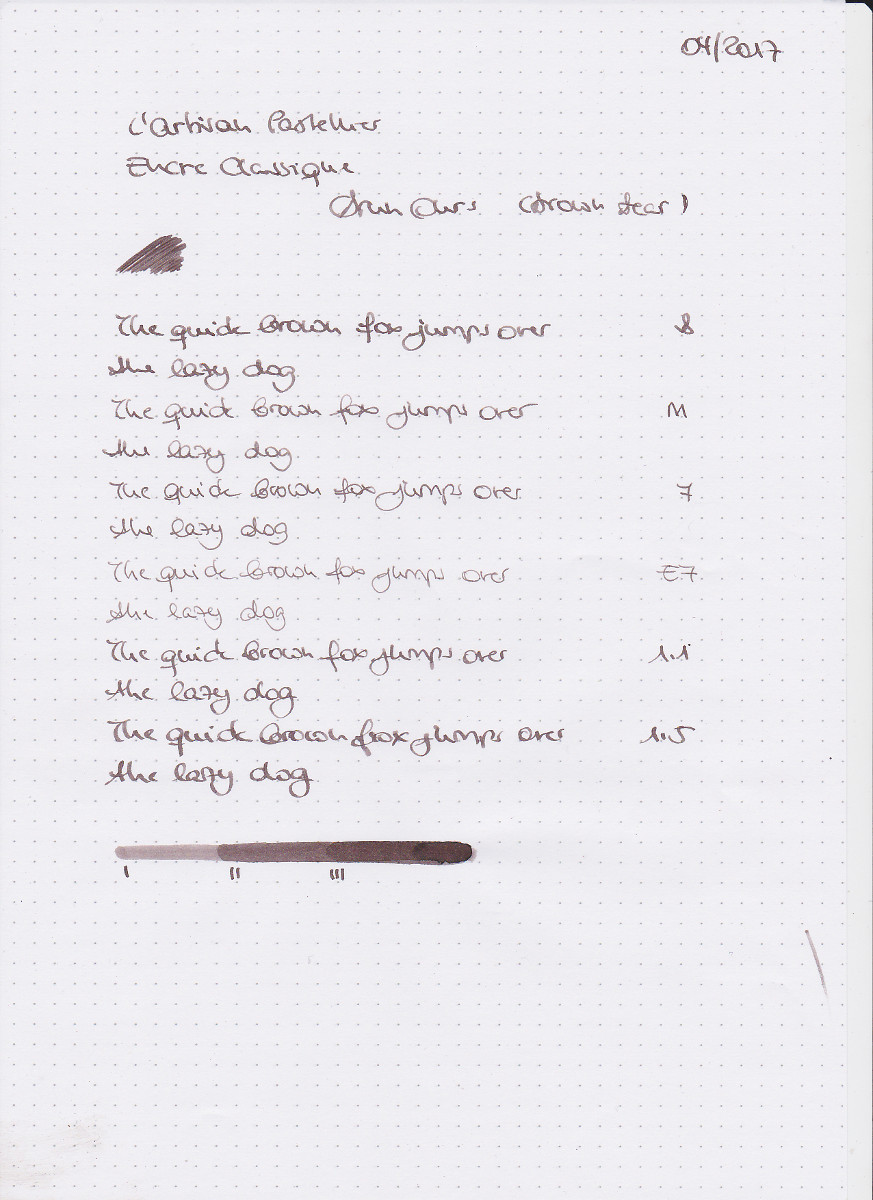 04/2017
L'Artisan Pastellier
Encre Classique
Brun Ours (Brown Bear)
The quick brown fox jumps over B
the lazy dog
The quick brown fox jumps over M
the lazy dog
The quick brown fox jumps over F
the lazy dog
The quick brown fox jumps over EF
the lazy dog
The quick brown fox jumps over 1.1
the lazy dog
The quick brown fox jumps over 1.5
the lazy dog
I II III